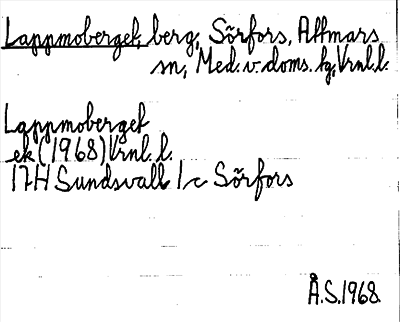 Lappmoberget, berg, Sörfors, Attmars
sn, Med. v. doms. tg, Vrnl. l.
Lappmoberget
ek (1968) Vrnl. l.
17H Sundsvall 1c Sörfors
Å.S. 1968